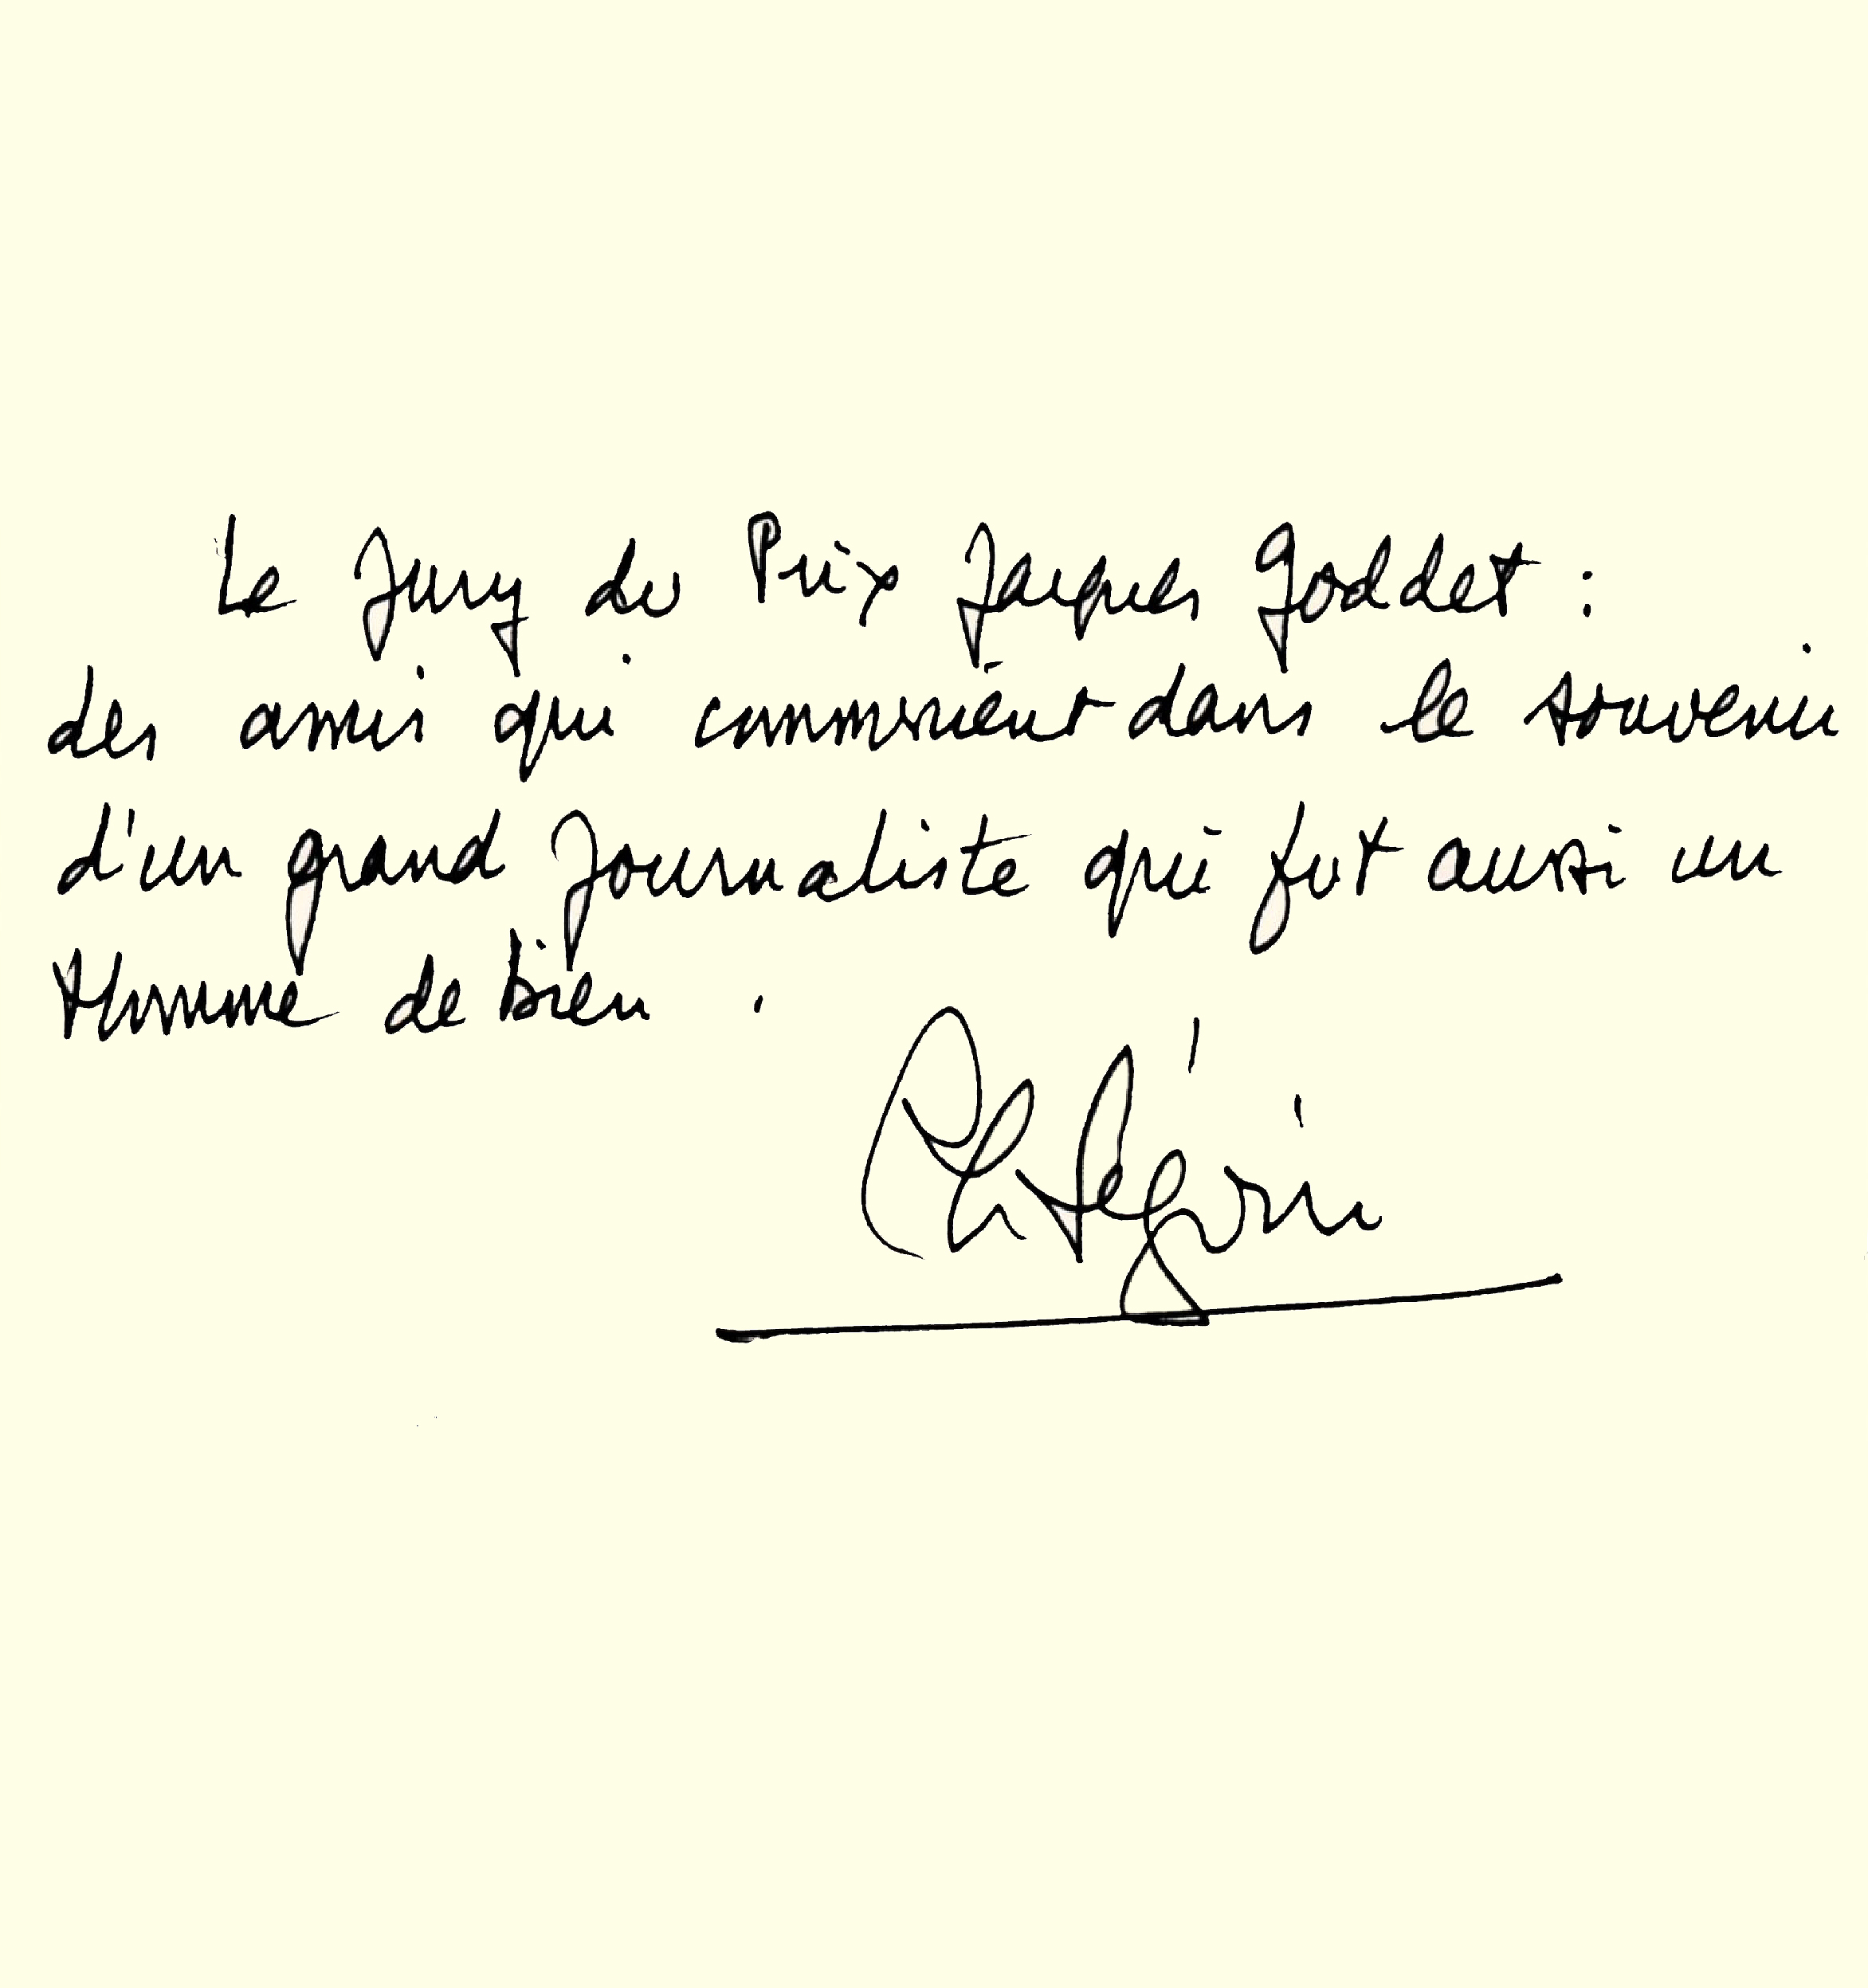 Le Jury du Prix Jacques Goddet :
des amis qui communient dans le souvenir
d'un grand Journaliste qui fut aussi un
Homme de bien .
Ph Séguin